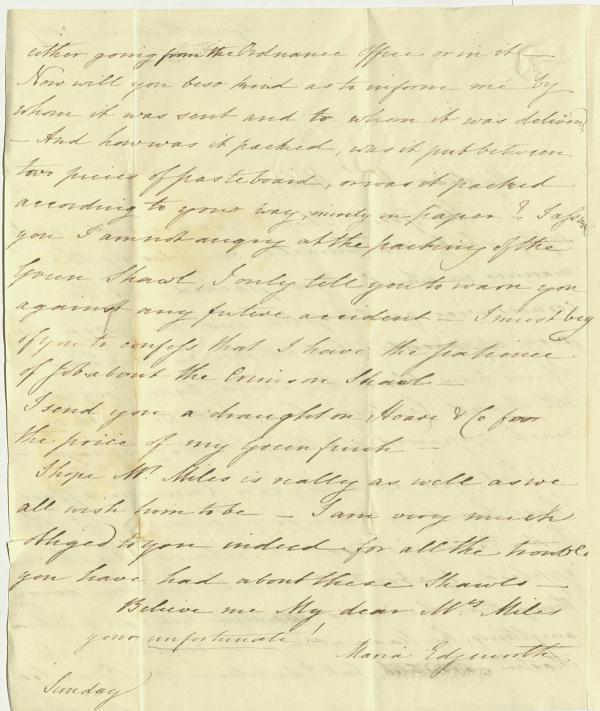 either going from the Ordnance Office or in it —
Now will you be so kind as to inform me by
whom it was sent and to whom it was delivered
— And how was it packed, was it put between
two pieces of pasteboard, or was it packed
according to your way, merely in paper? I assure
you I am not angry at the packing of the
Green Shawl, I only tell you to warn you
against any future accident — I must beg
of you to confess that I have the patience
of Job about the Crimson Shawl —
I send you a draught on Hoare & Co for
the price of my Greenfinch —
I hope Mr. Miles is really as well as we
all wish him to be — I am very much
obliged to you indeed for all the trouble
you have had about these Shawls —
Believe me My dear Mrs Miles
your unfortunate!
Maria Edgeworth,
Sunday